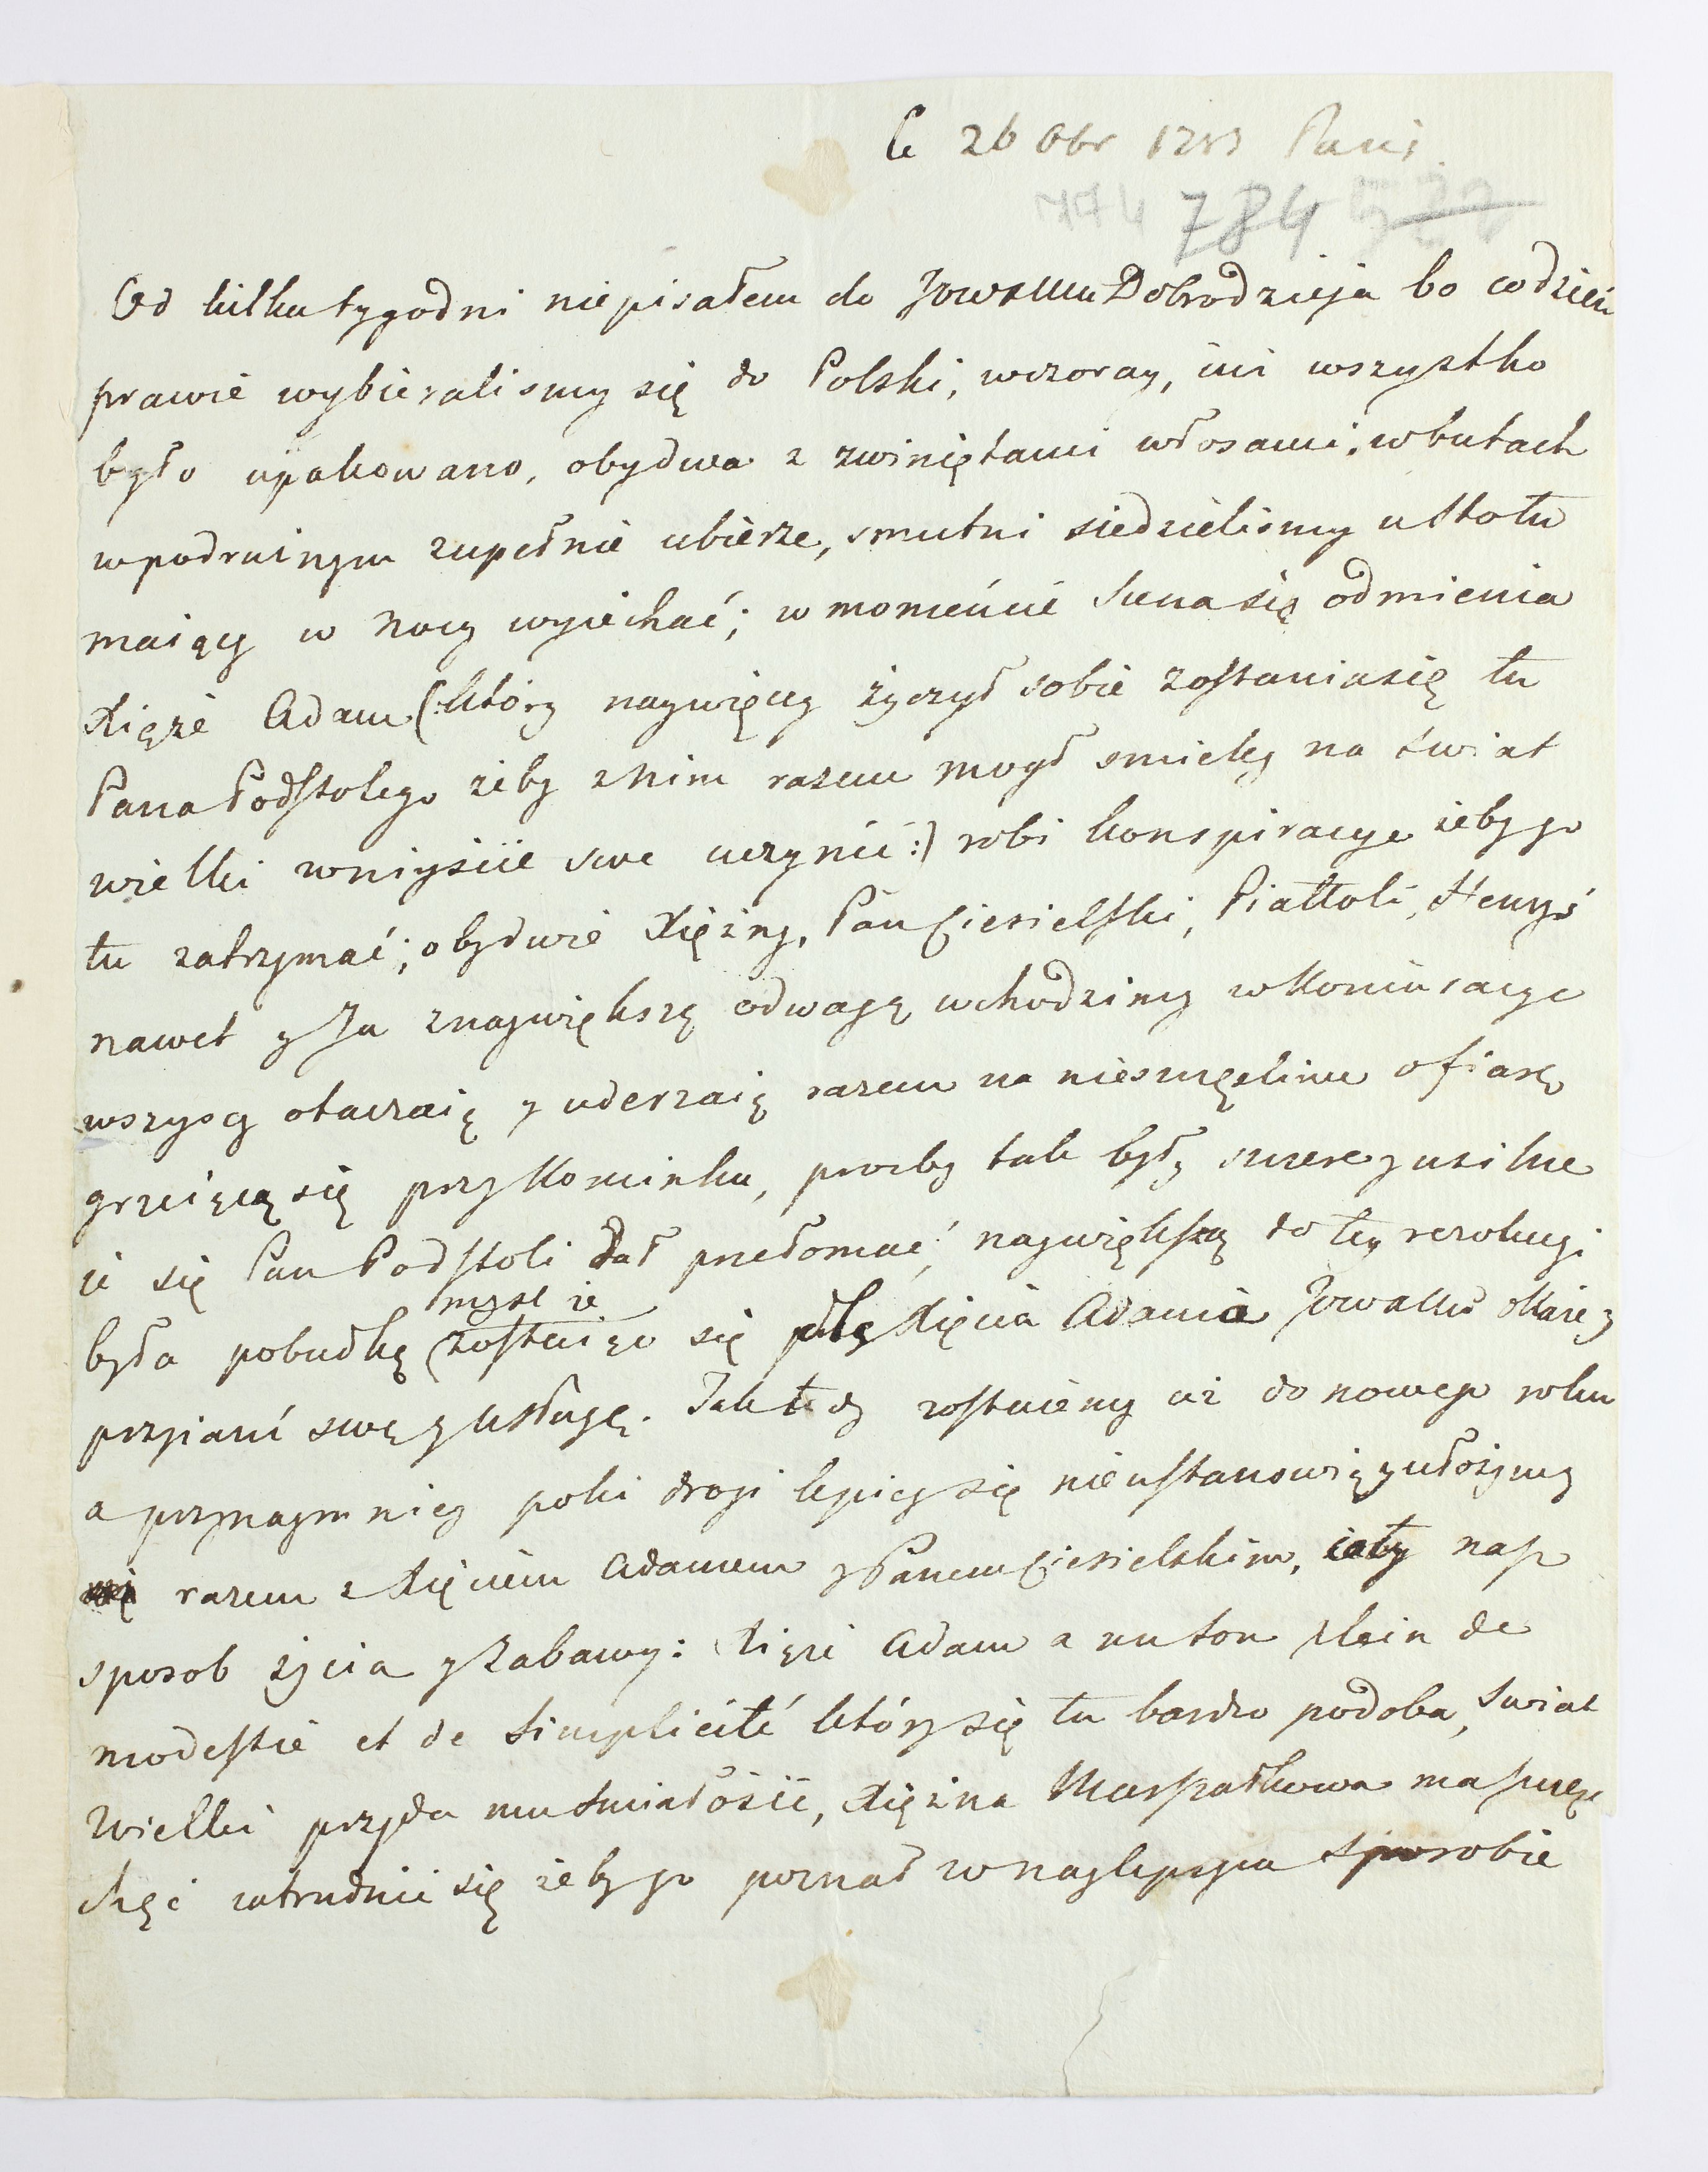 le 26 Obr 1787 Paris
784
Od kilku tygodni niepisałem do JWWMM Dobrodzieja bo codzień
prawie wybieralismy się do Polski, wczoray, iui wszystko
było upakowano, obydwa z zwiniętami włosami, wbutach
wpodruinym zupełnie ubierze, smutni siedzielismy u stołu
maiący w nocy wyiechać; w momeńcie scena się odmienia
Xiąże Adam (:który naywięcy życzył sobie zostania się tu
Pana Podstolego żeby z nim razem mogł smieley na swiat
wielki wniyscie swe uczynić:) robi konspiracye żeby go
tu zatrzymać; obydwie Xiężny, Pan Ciesielski, Piattoli, Henyś
nawet y Ja znaywiększą odwagą wchodzimy wKoniuracye
wszyscy otaczaią y uderzaią razem na nieszczęsliwe ofiarę
grzeiącą się przy Kominku, prozby tak były szczere y usilne
że się Pan Podstoli dał przełomać, naywiększą do tey rezolucyi
mysl że
była pobudką zostaiąc się Xięcia Adama JWWMM okaże
przyiaźń swą y usługę. Tak tedy zostaiemy aż do nowego roku
a przynaymniey poki drogi lepiey się nieustanowią y ułożymy
razem z Xięciem Adamem y Panem Ciesielskim, cały nasz
sposob życia y zabawy: Xiąże Adam a un ton plein de
modestie et de simplicité który się tu bardzo podoba, swiat
Wielki przyda mu smiałości, Xiężna Marszałkowa ma szczerą
chęć zatrudnić się żeby go poznał w naylepszym sposobie